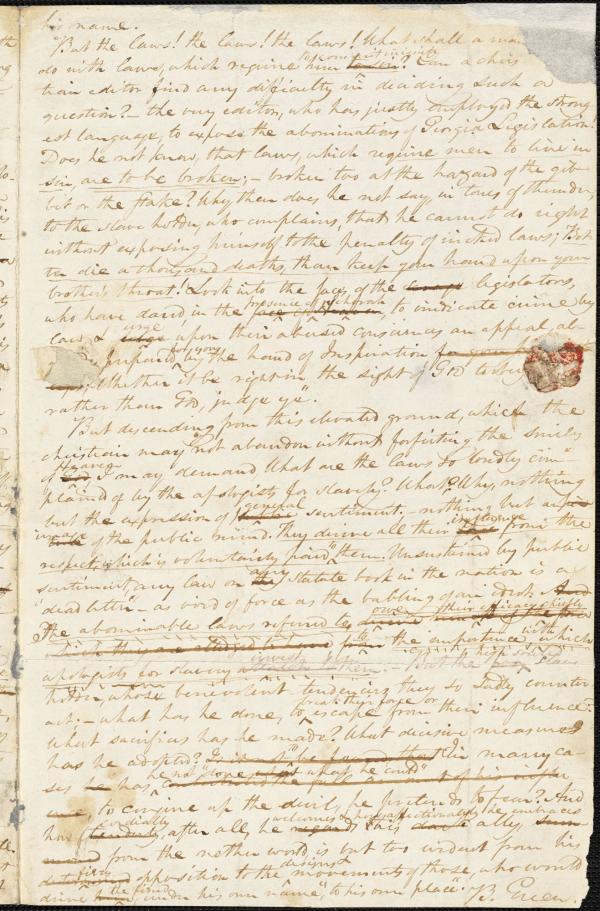 his name.
But the laws! the laws! the laws! What shall a man
do with laws, which require him to commit iniquity? Can a chris
tian editor find any difficulty in deciding such a
question?— the very editor, who has justly employed the strong
est language, to expose the abominations of Georgia Legislation!
Does he not know, that laws, which require men to live in
sin, are to be broken;— broken too at the hazard of the gib-
bit or the stake? Why then does he not say in tones of thunder,
to the slave holder, who complains, that he cannot do right
without exposing himself to the penalty of wicked laws; But
to die a thousand deaths, than keep your hand upon your
brother's throat! Look into the face of the legislators,
who have dared, in the presence of Jehovah, to vindicate crime by
law, & urge upon their abused consciences an appeal, al-
prepared by the hand of Inspiration for you
Whether it be right in the sight of God to obey
rather than God, judge ye".
But descending from this elevated ground, which the
christian may not abandon without forfeiting the smiles
of Heaven I may demand What are the laws so loudly com-
plained of by the apologists for slavery? What? Why, nothing
but the expression of general sentiment.— nothing but an
image of the public mind. They derive all their influence from the
respect, which is voluntarily paid them. Unsustained by public
sentiment, any law on any Statute book in the nation is a
"dead letter"— a word of force as the babbling of an idiot. And
The abominable laws referred to owe their efficacy chiefly
to the importance with which
apologists for slavery invest them. But the slave
holder, whose benevolent tendencies they so sadly counter
act.— what has he done, to break their force or escape from their influence?
What sacrifices has he made? What decisive measures
has he adopted? In many ca-
ses has he not "done what he could"
to conjure up the devil, he pretends to fear? And
how cordially, after all, he welcomes & how affectionately he embraces this ally,
from the nether world is but too evident from his
fiery opposition to the movements of those, who would
drive the fiend, under his own name, to his own place. B. Green.